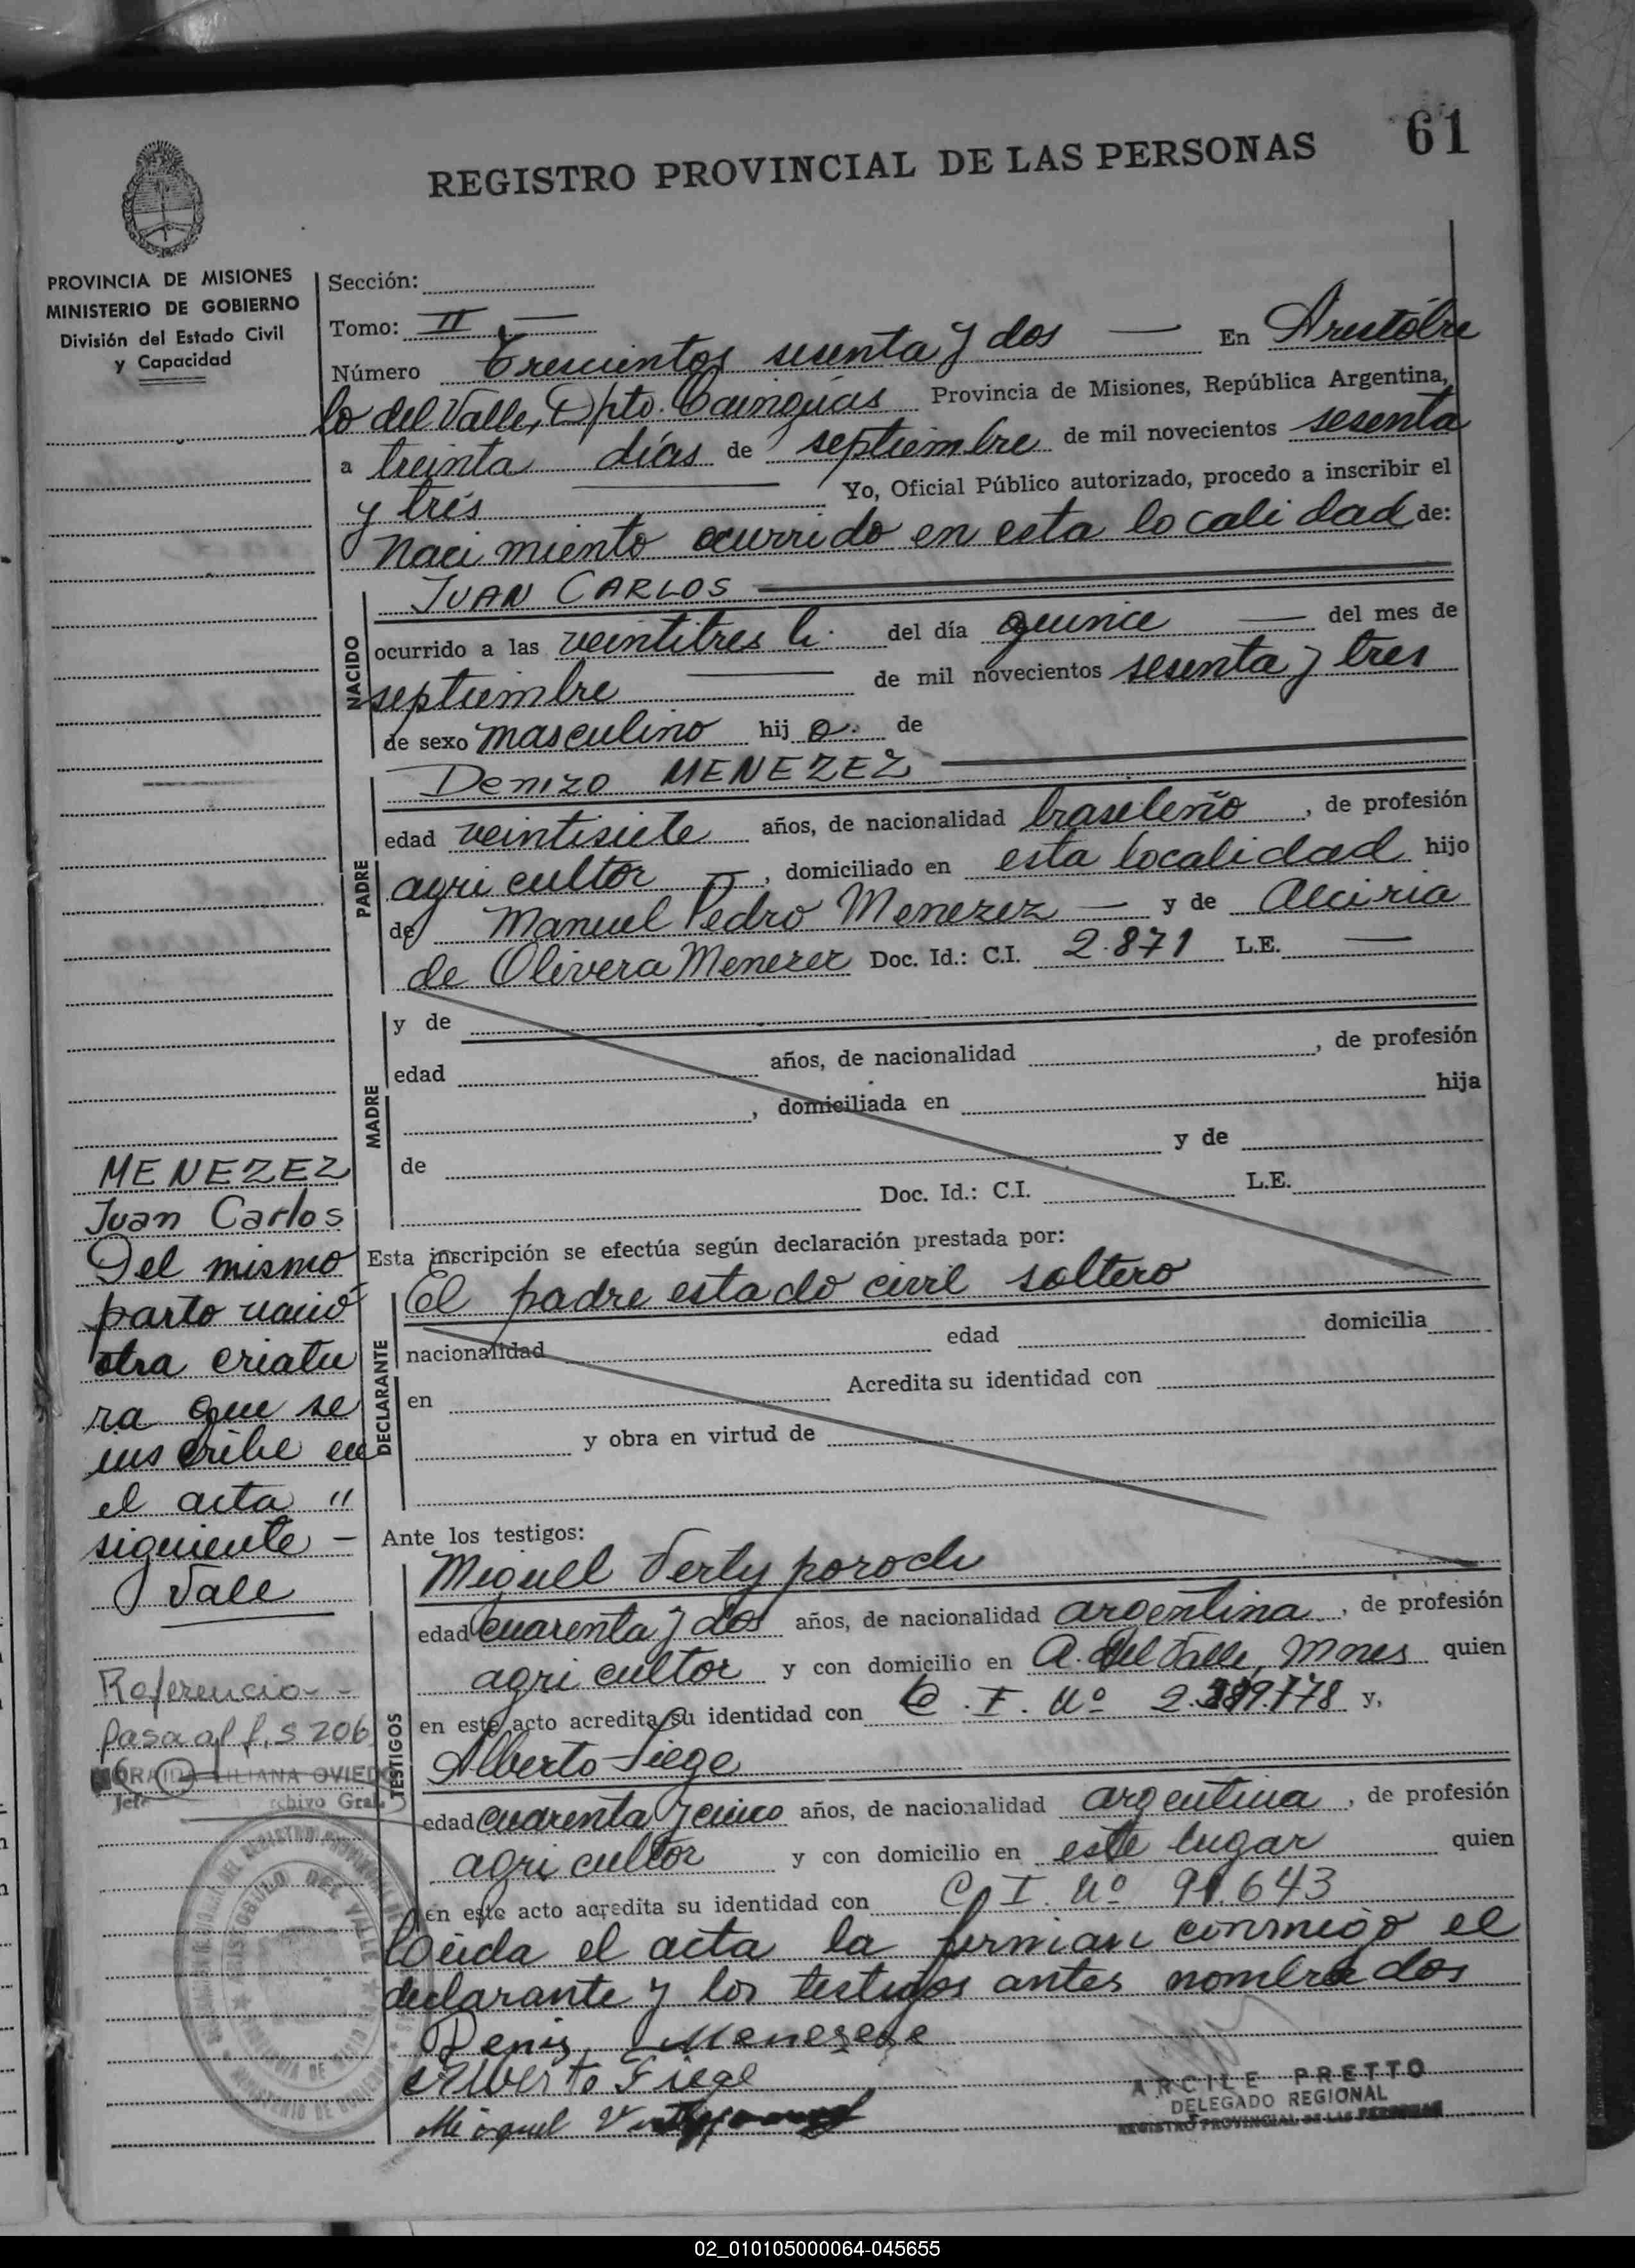 61
REGISTRO PROVINCIAL DE LAS PERSONAS
PROVINCIA DE MISIONES
MINISTERIO DE GOBIERNO
División del Estado Civil
y Capacidad
Sección:
Tomo: II —
Número Trescientos sesenta y dos — En Aristóbu
lo del Valle, Dpto. Cainguás Provincia de Misiones, República Argentina,
a treinta días de septiembre de mil novecientos sesenta
y trés — Yo, Oficial Público autorizado, procedo a inscribir el
nacimiento ocurrido en esta localidad de:
NACIDO
JUAN CARLOS
ocurrido a las veintitres h. del día quince — del mes de
septiembre — de mil novecientos sesenta y tres
de sexo masculino hij o. de
PADRE
Denizo MENEZEZ
edad veintisiete años, de nacionalidad brasileño, de profesión
agricultor —, domiciliado en esta localidad hijo
de Manuel Pedro Menezez — y de Alciria
de Olivera Menezez Doc. Id.: C.I. 2.871 L.E. —
MADRE
y de
edad años, de nacionalidad , de profesión
, domiciliada en hija
de y de
Doc. Id.: C.I. L.E.
Esta inscripción se efectúa según declaración prestada por:
DECLARANTE
El padre estado civil soltero
nacionalidad edad domicilia
en Acredita su identidad con
y obra en virtud de
Ante los testigos:
TESTIGOS
Miguel
edad cuarenta y dos años, de nacionalidad argentina, de profesión
agricultor y con domicilio en A. del Valle, Mnes quien
en este acto acredita su identidad con C. I. Nº y,
Alberto Fiege
edad cuarenta y cinco años, de nacionalidad argentina, de profesión
agricultor y con domicilio en este lugar quien
en este acto acredita su identidad con C. I. Nº 91.643
Leida el acta la firman conmigo el
declarante y los testigos antes nombrados
Alberto Fiege
Miguel
ARCILE PRETTO
DELEGADO REGIONAL
REGISTRO PROVINCIAL DE LAS PERSONAS
MENEZEZ
Juan Carlos
Del mismo
parto nació
otra criatu
ra que se
inscribe en
el acta "
siguiente —
Vale
Referencia - -
Pasa al f, S 206
LILIANA OVIEDO
Jefe Archivo Gral.
ARISTOBULO DEL VALLE
02_010105000064-045655